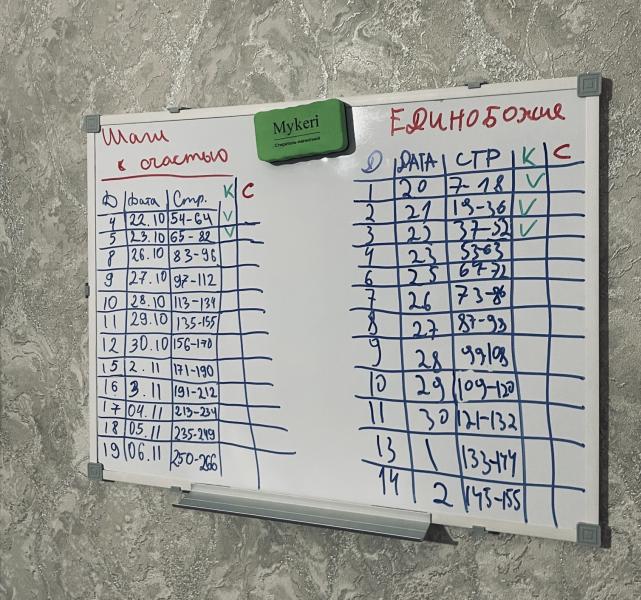 Шаги
к счастью
Д Дата Стр. К С
4 22.10 54-64 V
5 23.10 65-82 V
8 26.10 83-96
9 27.10 97-112
10 28.10 113-134
11 29.10 135-155
12 30.10 156-170
15 2.11 171-190
16 3.11 191-212
17 04.11 213-234
18 05.11 235-249
19 06.11 250-266
Mykeri
ЕДИНОБОЖИЕ
Д ДАТА СТР К С
1 20 7-18 V
2 21 19-36 V
3 22 37-52 V
4 23 53-63
6 25 64-72
7 26 73-86
8 27 87-98
9 28 99 108
10 29 109-120
11 30 121-132
13 1 133-144
14 2 145-155